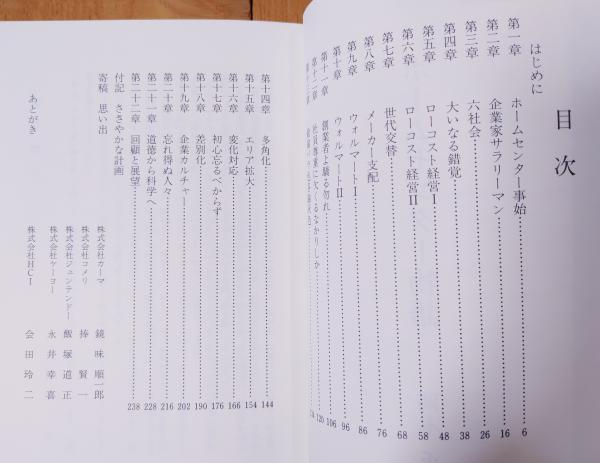 目次
はじめに
第一章 ホームセンター事始 6
第二章 企業家サラリーマン 16
第三章 六社会 26
第四章 大いなる錯覚 38
第五章 ローコスト経営Ⅰ 48
第六章 ローコスト経営Ⅱ 58
第七章 世代交替 68
第八章 メーカー支配 76
第九章 ウォルマートⅠ 86
第十章 ウォルマートⅡ 96
第十一章 創業者よ驕る勿れ 106
第十二章 社員専業に欠くるなかりしか 120
第十四章 多角化 144
第十五章 エリア拡大 154
第十六章 変化対応 166
第十七章 初心忘るべからず 176
第十八章 差別化 190
第十九章 企業カルチャー 202
第二十章 忘れ得ぬ人々 216
第二十一章 道徳から科学へ 228
第二十二章 回顧と展望 238
付記 ささやかな計画
寄稿 思い出
株式会社カーマ 鏡味順一郎
株式会社コメリ 捧賢一
株式会社ジュンテンドー 飯塚道正
株式会社ケーヨー 永井幸喜
あとがき
株式会社HCI 会田玲二